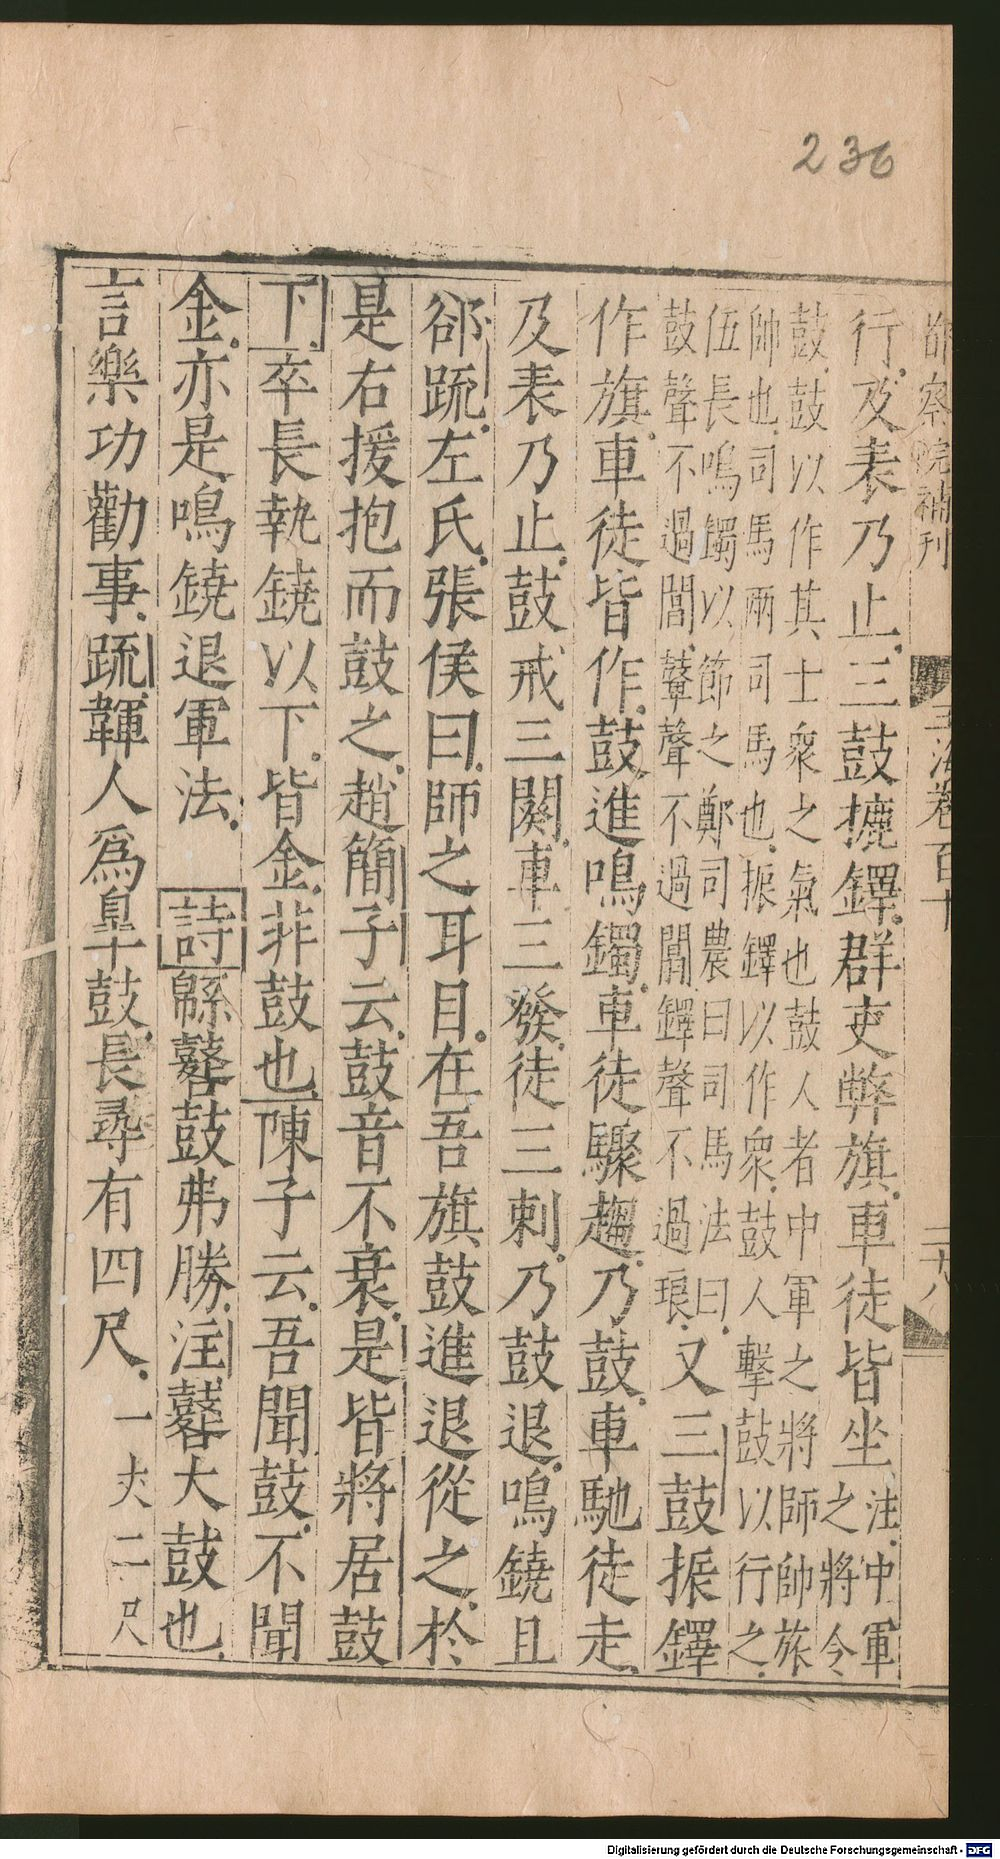 236
都察院補刊 玉海卷百十 二十八
行及表乃止三鼓摝鐸群吏弊旗車徒皆坐注中軍
之將令
鼓鼓以作其士衆之氣也鼓人者中軍之將師帥旅
帥也司馬兩司馬也振鐸以作衆鼓人擊鼓以行之
伍長鳴鐲以節之鄭司農曰司馬法曰
鼓聲不過閶鼙聲不過闒鐸聲不過琅
又三鼓振鐸
作旗車徒皆作鼓進鳴鐲車徒驟趨乃鼓車馳徒走
及表乃止鼓戒三闋車三發徒三刺乃鼓退鳴鐃且
郤疏左氏張侯曰師之耳目在吾旗鼓進退從之於
是右援抱而鼓之趙簡子云鼓音不衰是皆將居鼓
下卒長執鐃以下皆金非鼓也陳子云吾聞鼓不聞
金亦是鳴鐃退軍法 詩緜鼛鼓弗勝注鼛大鼓也
言樂功勸事疏韗人爲皐鼓長尋有四尺一丈二尺
Digitalisierung gefördert durch die Deutsche Forschungsgemeinschaft - DFG